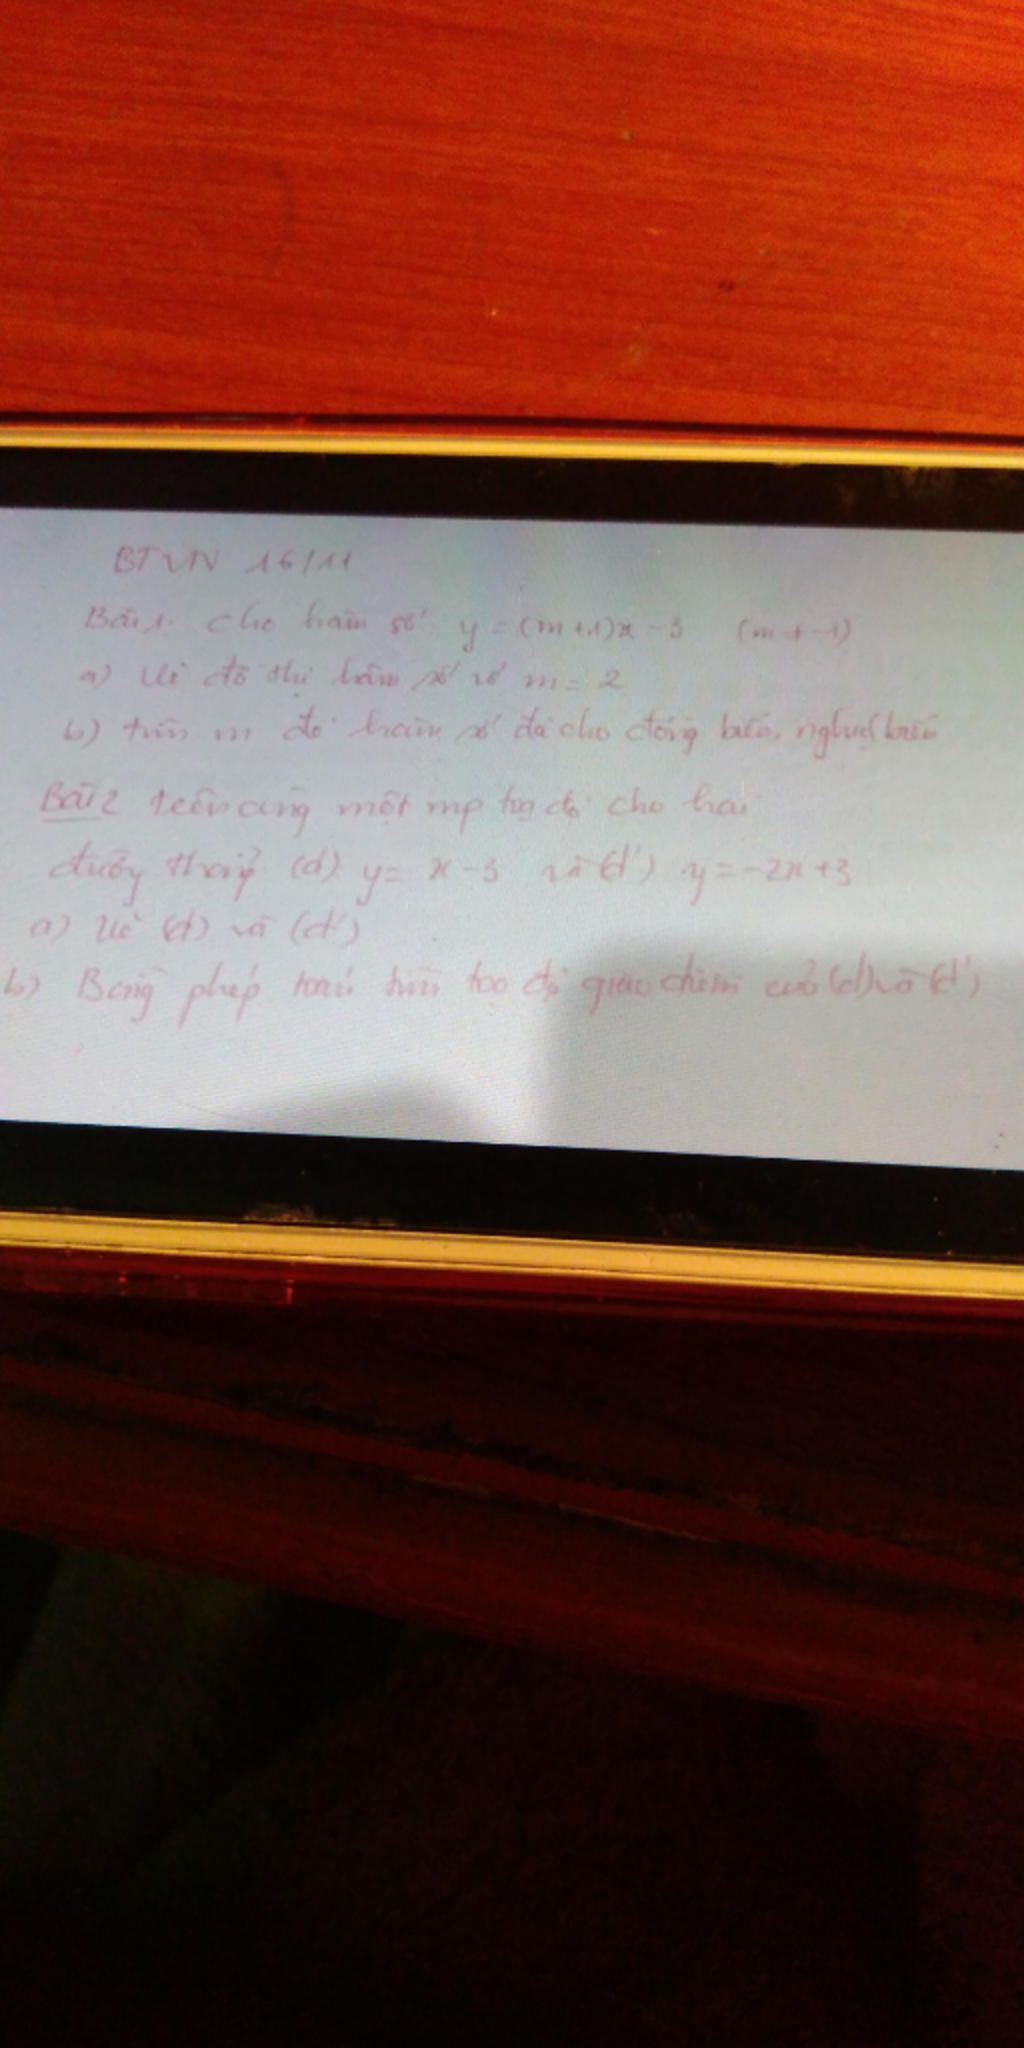 BTVN 16/11
Bài 1. Cho hàm số y = (m+1)x - 3 (m ≠ -1)
a) Vẽ đồ thị hàm số với m = 2
b) tìm m để hàm số đã cho đồng biến, nghịch biến
Bài 2 trên cùng một mp toạ độ cho hai
đường thẳng (d) y = x - 3 và (d') y = -2x + 3
a) Vẽ (d) và (d')
b) Bằng phép toán tìm toạ độ giao điểm của (d) và (d')